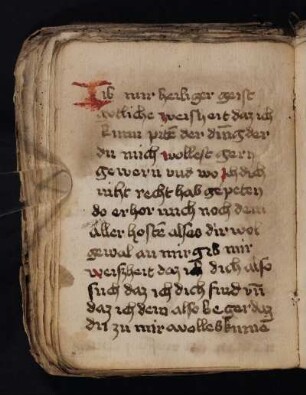 Gib mir heiliger geist
gotliche weisheit daz ich
kunn piten der ding der
du mich wollest gern
gewern vnd wo ich dich
niht recht hab gepeten
do erhor mich noch dem
aller hosten als es dir wol
geual an mir gib mir
weisheit daz ich dich also
such daz ich dich find vn̄
daz ich dein also beger daz
du zu mir wollest kumē